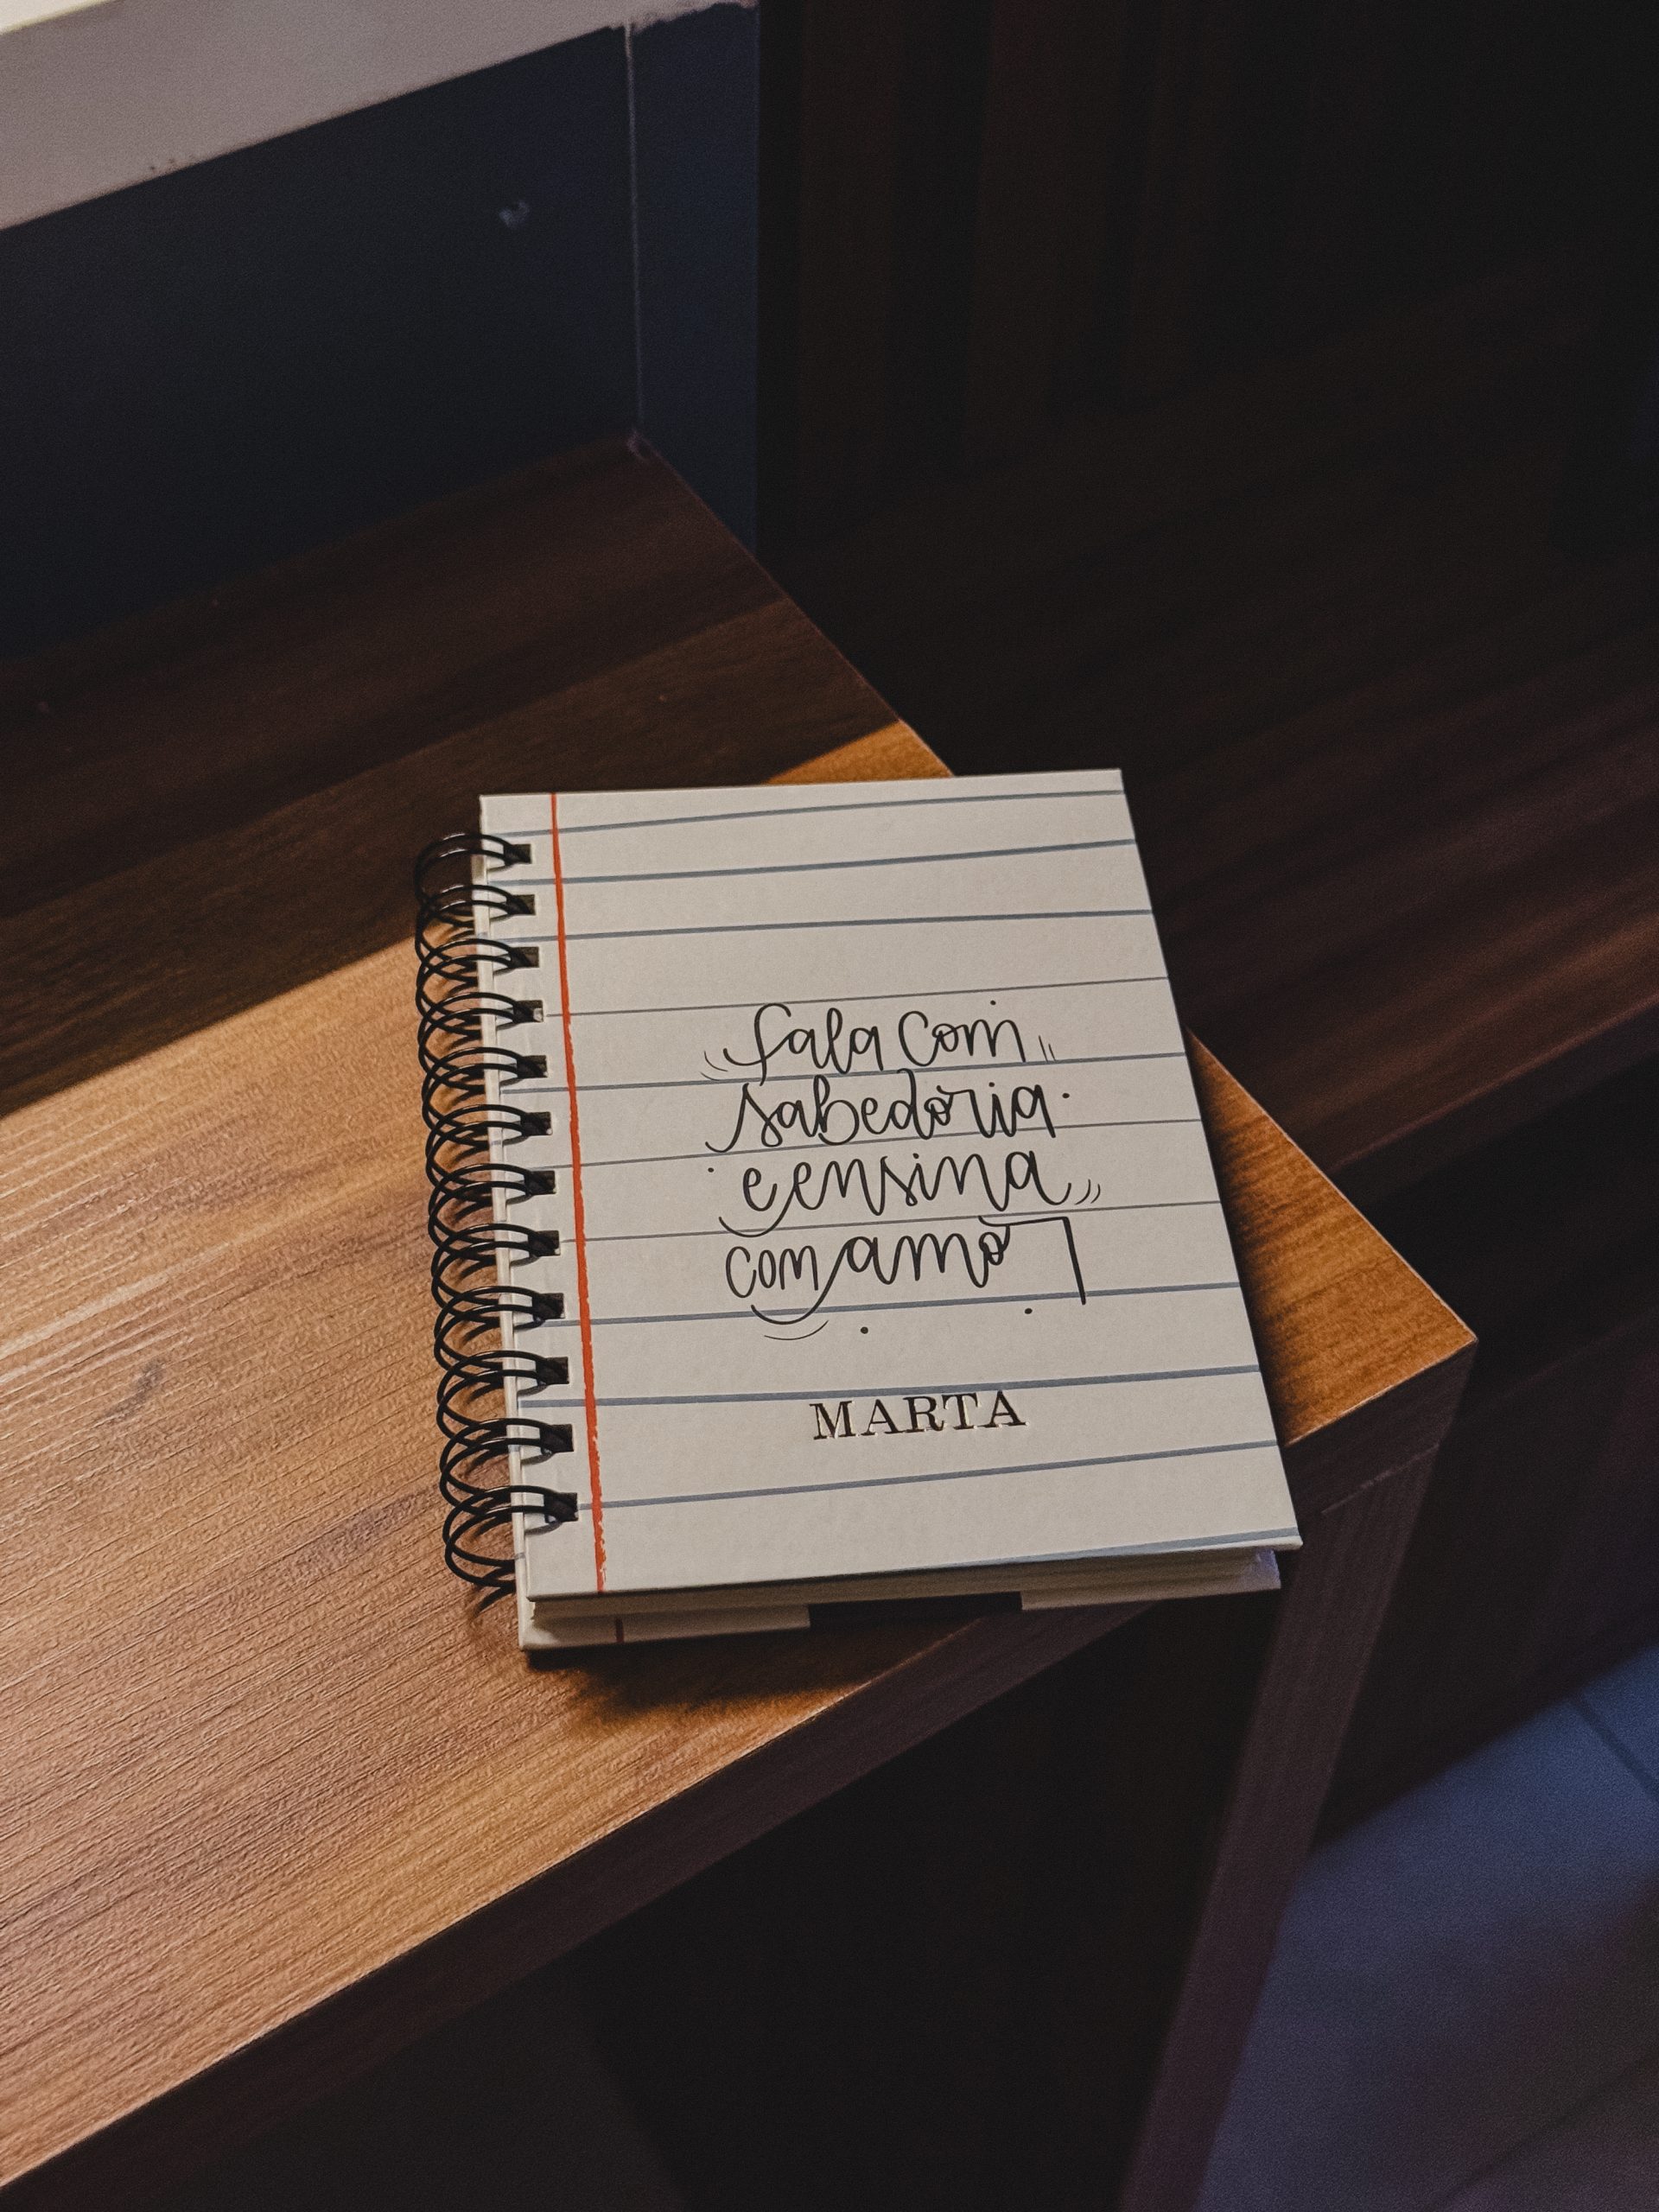 fala com
sabedoria
e ensina
com amor
MARTA